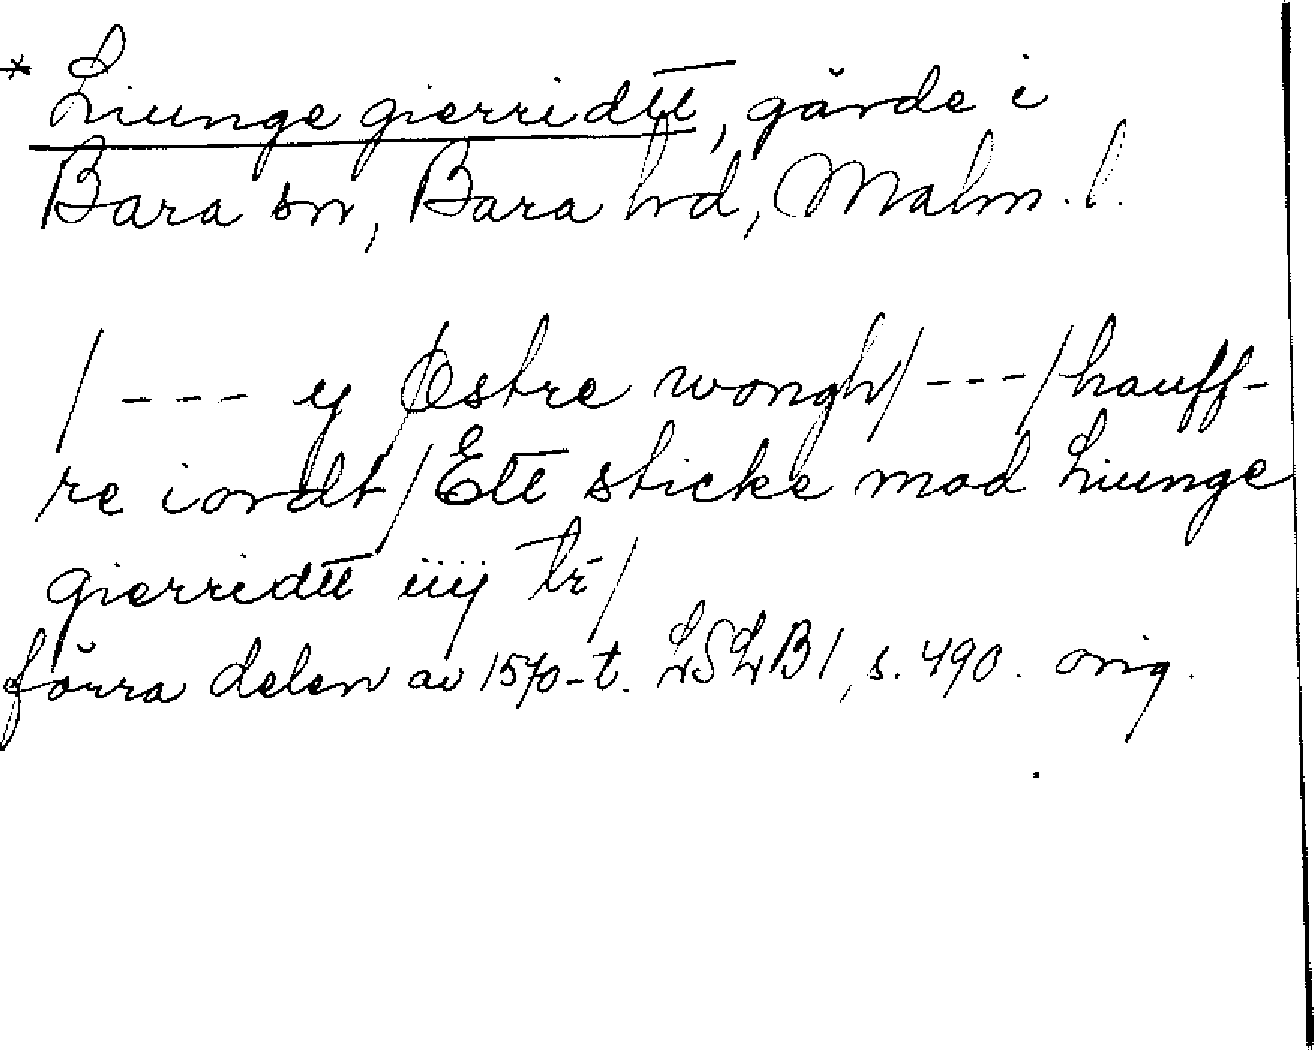 * Liunge gierridtt, gärde i
Bara sn, Bara hd, Malm. l.
/ --- y Østre wongh/ --- / hauff-
re iordt / Ett sticke mod Liunge
gierridtt iiij tr /
förra delen av 1570-t. LSLB 1, s. 490. orig.